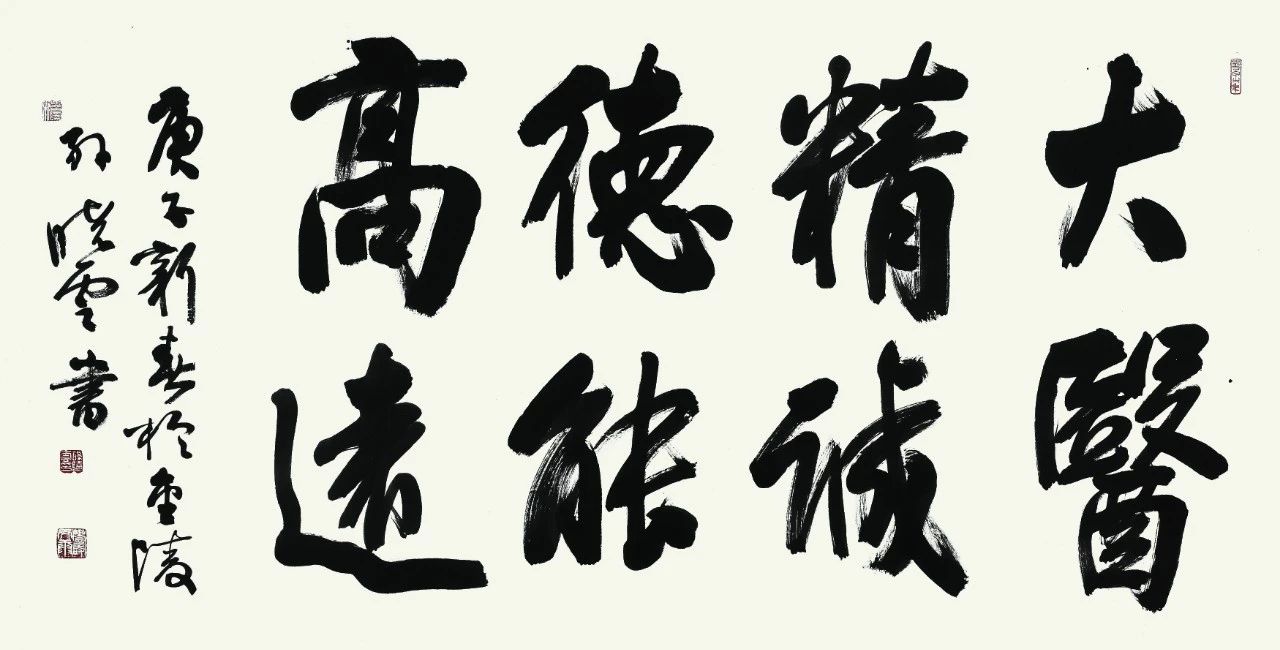 大醫
精誠
德能
高遠
庚子新春於金陵
孙曉雲書